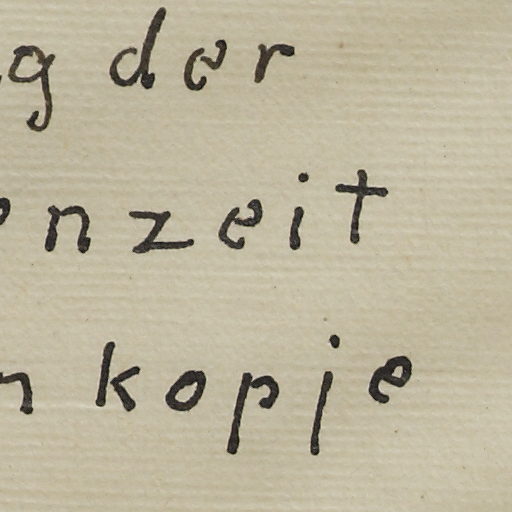 g der
nzeit
n kopje